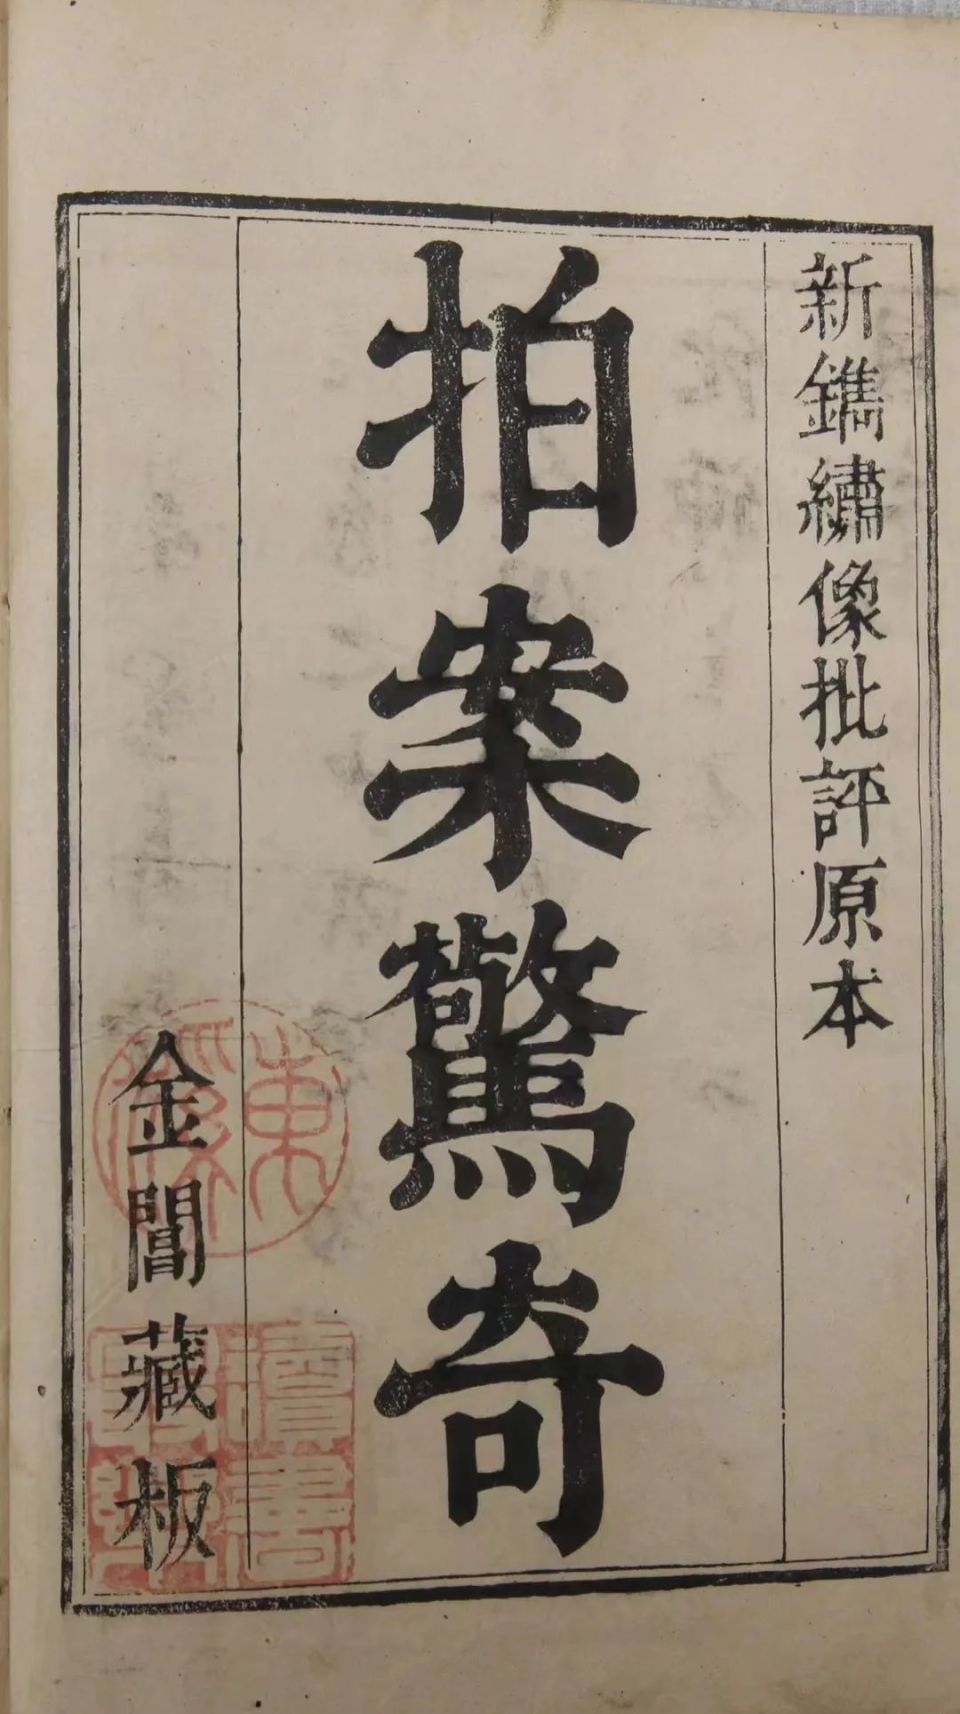 新鐫繡像批評原本
拍案驚奇
金閶藏板
東
讀書